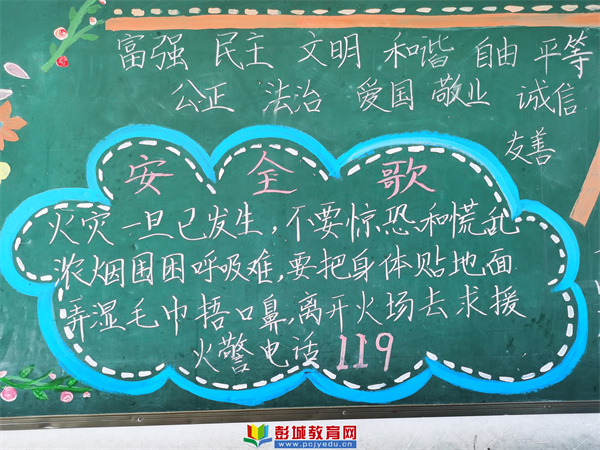 富强 民主 文明 和谐 自由 平等
公正 法治 爱国 敬业 诚信
友善
安全歌
火灾一旦已发生,不要惊恐和慌乱
浓烟围困呼吸难,要把身体贴地面
弄湿毛巾捂口鼻,离开火场去求援
火警电话 119
彭城教育网
www.pcjyedu.cn